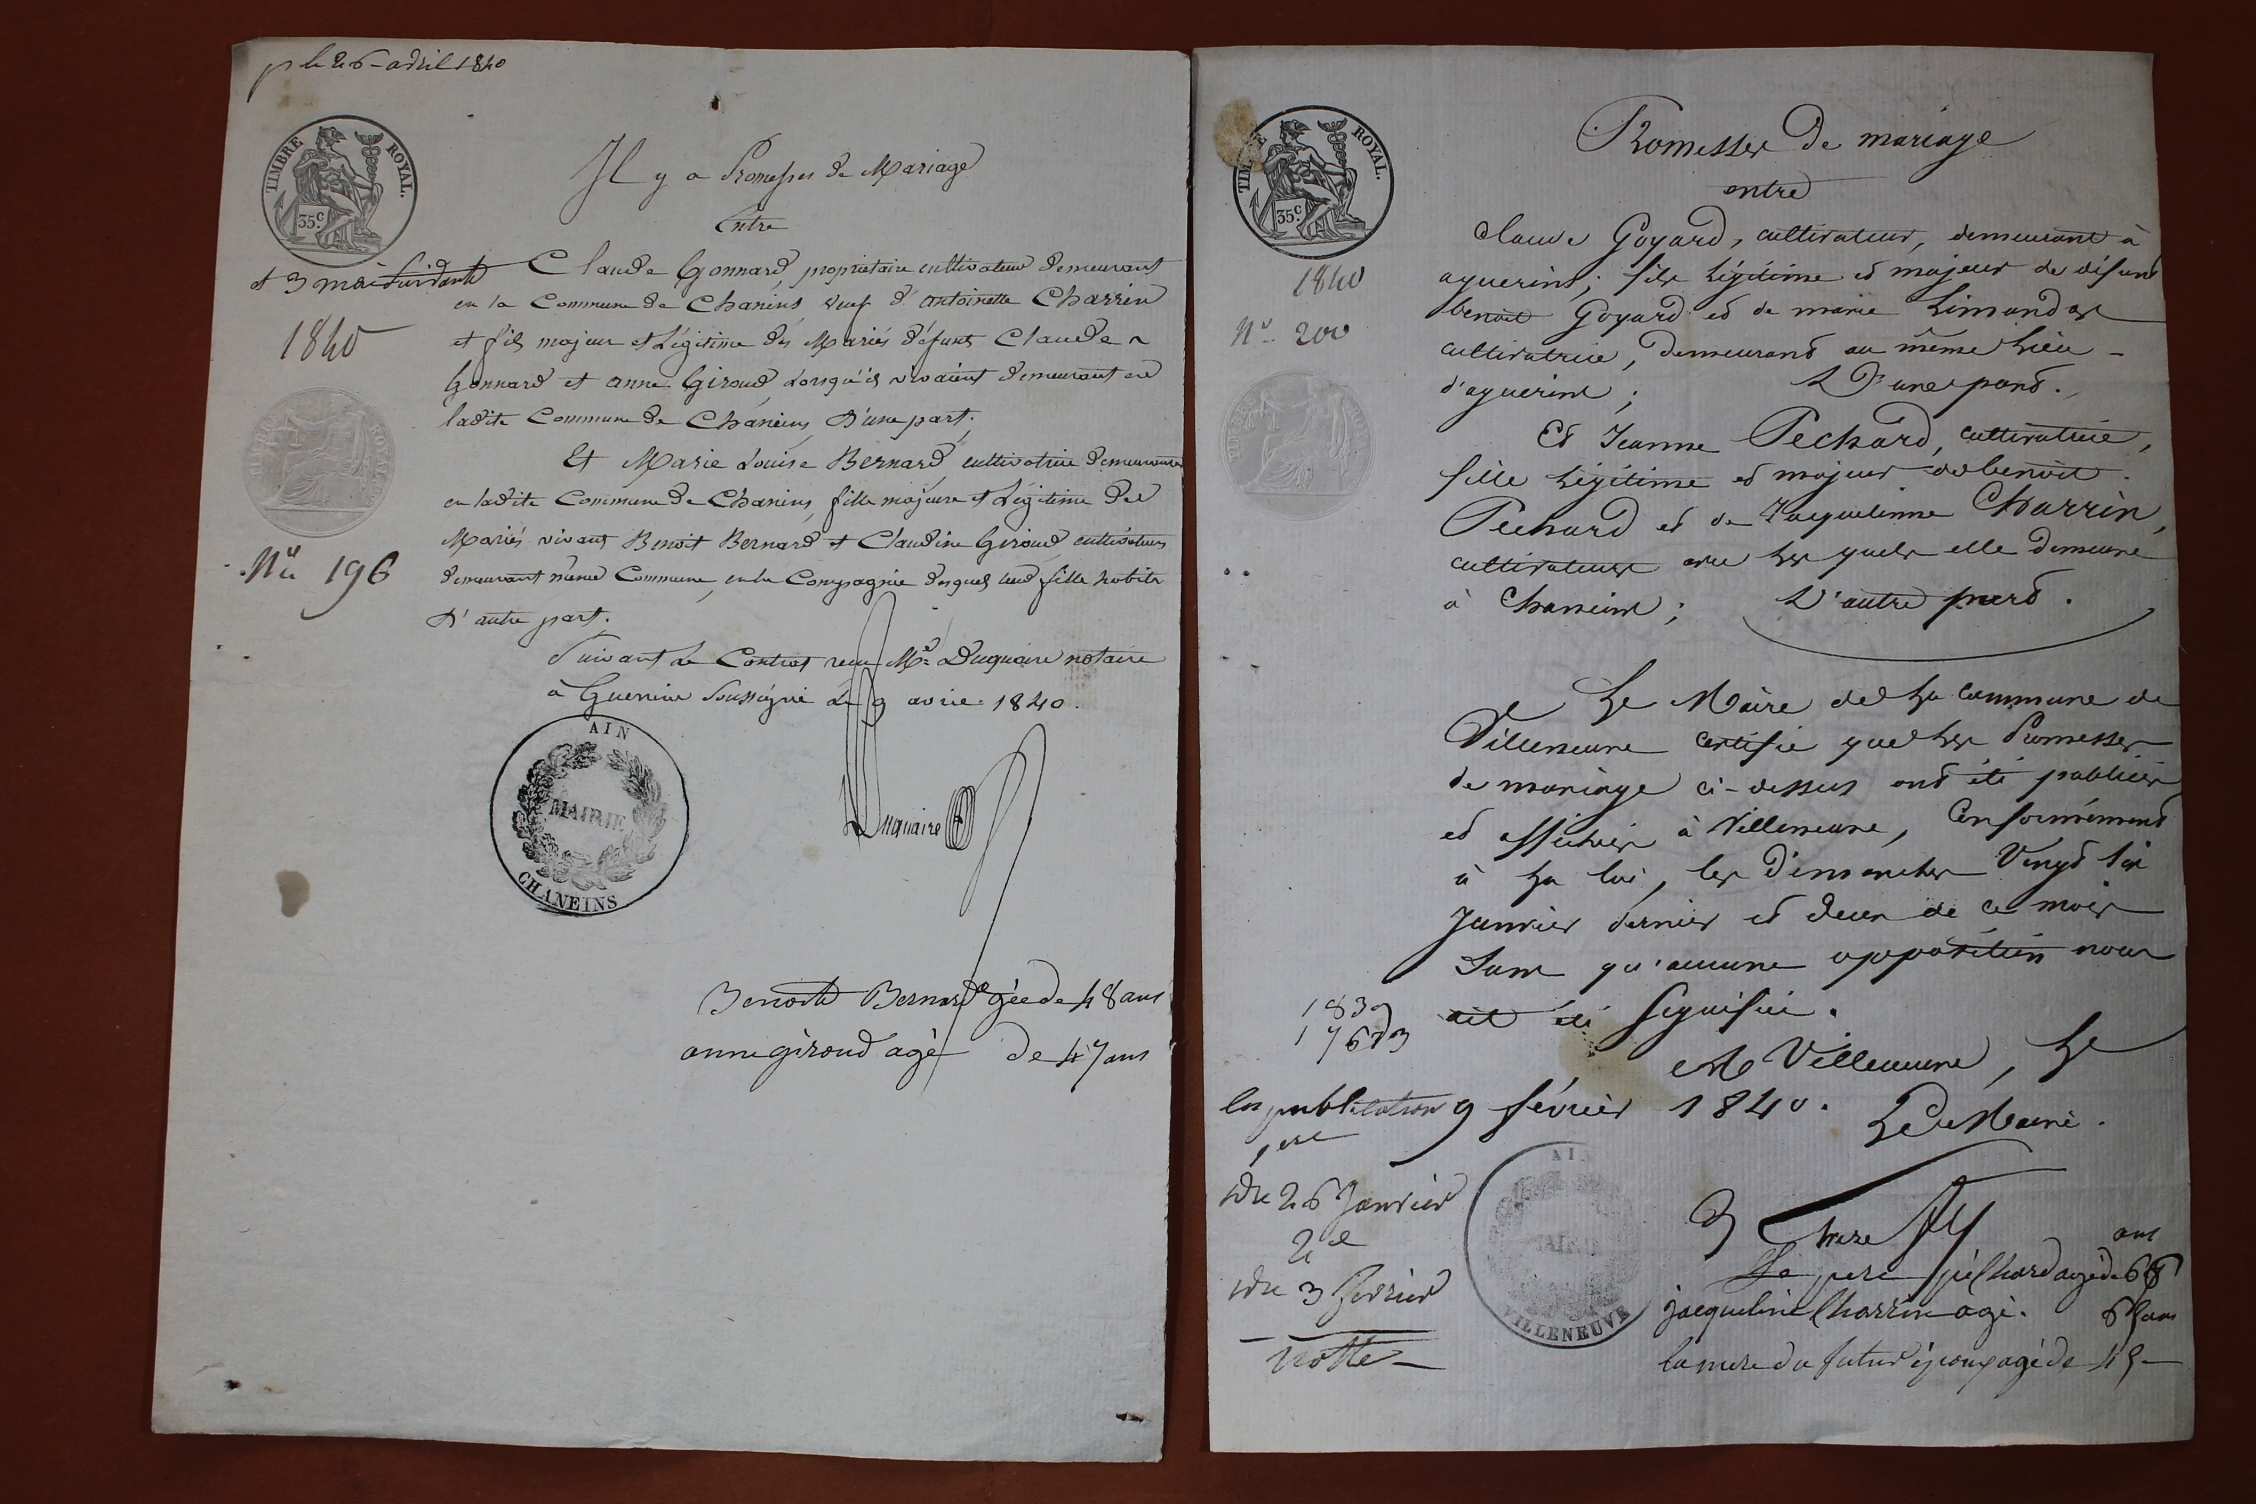 p le 26 avril 1840
TIMBRE ROYAL.
35 c.
Il y a Promesses de Mariage
Entre
et 3 mai suivant
1840
Nº 196
Claude Gonnard, propriétaire cultivateur demeurant
en la Commune de Chaneins veuf d'antoinette Charrin
et fils majeur et Légitime des Mariés défunts Claude
Gonnard et anne Giroud, Lorsqu'ils vivaient demeurant en
ladite Commune de Chaneins, D'une part;
Et Marie Louise Bernard cultivatrice demeurante
en ladite Commune de Chaneins, fille majeure et Légitime des
Mariés vivans Benoit Bernard et Claudine Giroud, cultivateurs
demeurant même Commune, en la Compagnie desquels leur fille habite
D'autre part.
Suivant le Contrat reçu Me Duquaire notaire
à Guereins Soussigné Le 9 avril 1840.
AIN
MAIRIE
CHANEINS
Duquaire
Benoit Bernard agée de 48 ans
anne giroud agé de 47 ans
TIMBRE ROYAL.
35 c.
1840
Nº 200
Promesses de mariage
entre
Claude Goyard, cultivateur, demeurant à
aguerins; fils légitime et majeur de défunt
benoit Goyard et de marie Limandas
cultivatrice, demeurant au même Lieu
d'aguerins; D'une part.
Et Jeanne Pechard, cultivatrice,
fille légitime et majeur de benoit
Pechard et de Jacquelinne Charrin,
cultivateurs avec les quels elle demeure
à Chaneins; D'autre part.
Le Maire de La commune de
Villeneuve certifie que les Promesses
de mariage ci-dessus ont été publiées
et affichées à Villeneuve, Conformément
à La loi, les Dimanches Vingt six
Janvier dernier et deux de ce mois
Sans qu'aucune opposition nous
ait été signifiée.
A Villeneuve, Le
9 février 1840.
Le Maire.
1839
les publication
1ere
du 26 Janvier
2e
du 3 fevrier
notte
AIN
MAIRIE
VILLENEUVE
Le pere pechard agé de 68 ans
jacqueline Charrin agé. ans
la mere du futur époux agé de